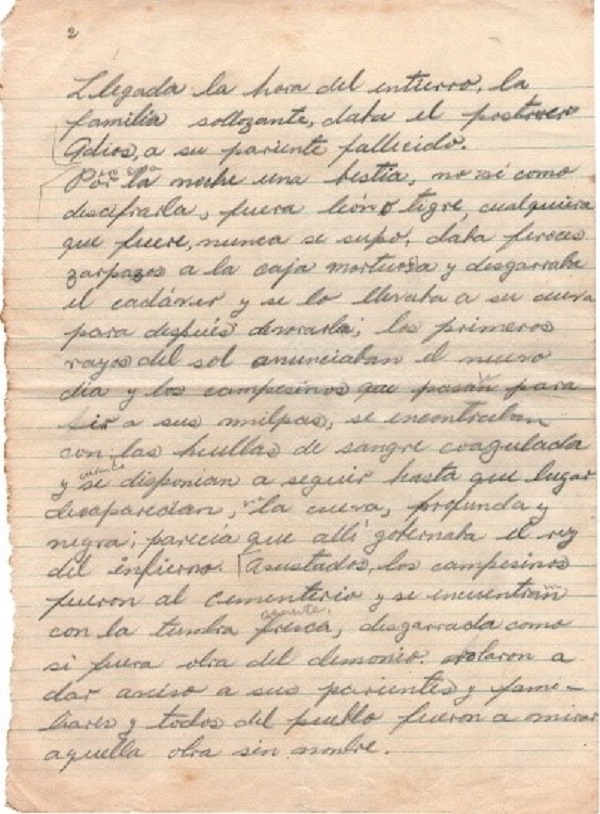 2
Llegada la hora del entierro, la
familia sollozante, daba el postrer
Adios, a su pariente fallecido.
Por la noche una bestia, no sé como
descifrarla, fuera león o tigre, cualquiera
que fuere, nunca se supo, daba feroces
zarpazos a la caja mortuoria y desgarraba
el cadáver y se lo llevaba a su cueva
para después devorarla; los primeros
rayos del sol anunciaban el nuevo
dia y los campesinos que pasan para
ir a sus milpas, se encontraban
con las huellas de sangre coagulada
y se disponian a seguir hasta que lugar
desaparecian, la cueva, profunda y
negra; parecía que allí gobernaba el rey
del infierno. Asustados, los campesinos
fueron al cementerio y se encuentran
con la tumba fresca, desgarrada como
si fuera obra del demonio. volaron a
dar aviso a sus parientes y fami-
liares y todos del pueblo fueron a mirar
aquella obra sin nombre.